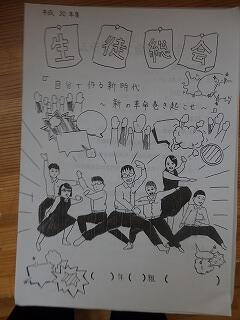 平成 30年度
生徒総会
自分で作る新時代
～新の革命巻き起こせ～
(　)年(　)組(　　　)